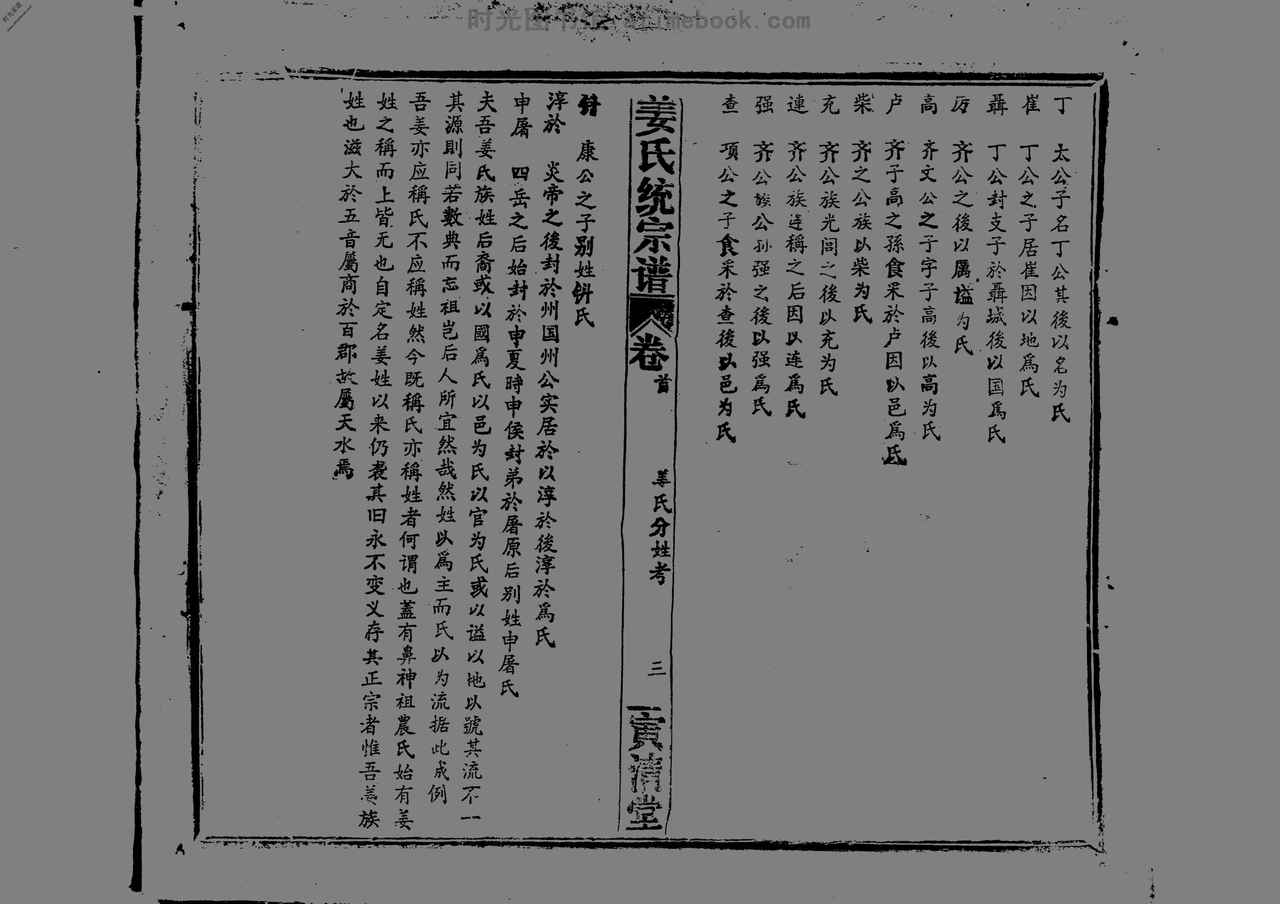 丁 太公子名丁公其後以名为氏
崔 丁公之子居崔因以地爲氏
聶 丁公封支子於聶城後以国爲氏
厉 齐公之後以厲谥为氏
高 齐文公之子字子高後以高为氏
卢 齐子高之孫食采於卢因以邑爲氏
柴 齐之公族以柴为氏
充 齐公族光闾之後以充为氏
連 齐公族连稱之后因以连爲氏
强 齐公族公孙强之後以强爲氏
查 项公之子食采於查後以邑为氏
姜氏统宗谱 卷首 姜氏分姓考 三 寅清堂
康公之子别姓倂氏
淳於 炎帝之後封於州国州公实居於以淳於後淳於爲氏
申屠 四岳之后始封於申夏時申侯封弟於屠原后别姓申屠氏
夫吾姜氏族姓后裔或以國爲氏以邑为氏以官为氏或以谥以地以號其流不一
其源則同若數典而忘祖岂后人所宜然哉然姓以爲主而氏以为流据此成例
吾姜亦应稱氏不应稱姓然今既稱氏亦稱姓者何谓也蓋有鼻神祖農氏始有姜
姓之稱而上皆无也自定名姜姓以来仍袭其旧永不变义存其正宗者惟吾姜族
姓也滋大於五音屬商於百郡故屬天水焉
时光图书馆 book.com